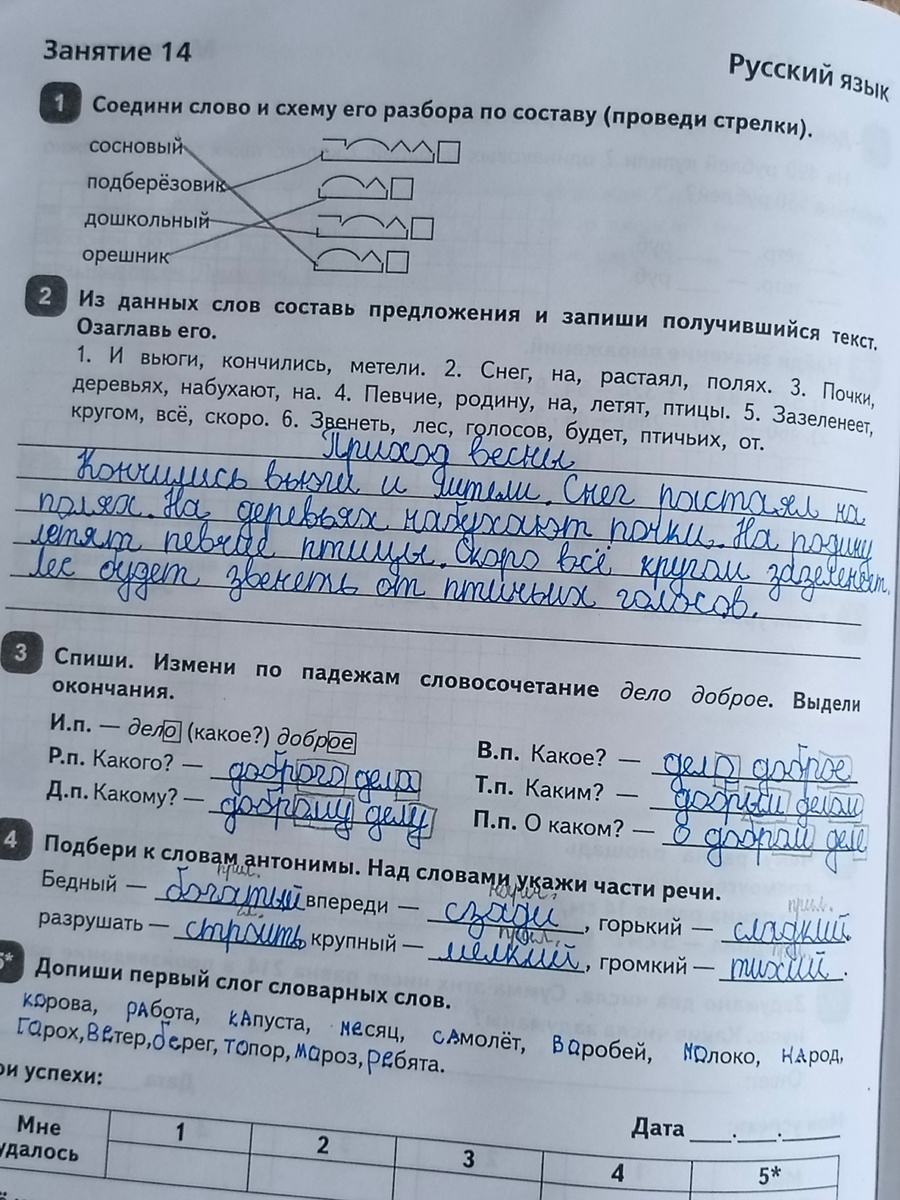 Занятие 14
Русский язык
1 Соедини слово и схему его разбора по составу (проведи стрелки).
сосновый
подберёзовик
дошкольный
орешник
2 Из данных слов составь предложения и запиши получившийся текст.
Озаглавь его.
1. И вьюги, кончились, метели. 2. Снег, на, растаял, полях. 3. Почки,
деревьях, набухают, на. 4. Певчие, родину, на, летят, птицы. 5. Зазеленеет,
кругом, всё, скоро. 6. Звенеть, лес, голосов, будет, птичьих, от.
Приход весны
Кончились вьюги и мители. Снег растаял на
полях. На деревьях набухают почки. На родину
летят певчие птицы. Скоро всё кругом зазеленеет.
лес будет звенеть от птичьих голосов.
3 Спиши. Измени по падежам словосочетание дело доброе. Выдели
окончания.
И.п. — дело (какое?) доброе
Р.п. Какого? — доброго дела
Д.п. Какому? — доброму делу
В.п. Какое? — дело доброе
Т.п. Каким? — добрым делом
П.п. О каком? — о добром деле
4 Подбери к словам антонимы. Над словами укажи части речи.
прил. нареч. прил.
Бедный — богатый впереди — сзади, горький — сладкий
гл. прил. прил.
разрушать — строить крупный — мелкий, громкий — тихий.
5* Допиши первый слог словарных слов.
корова, работа, капуста, месяц, самолёт, варобей, молоко, народ,
гарох, ветер, берег, топор, мароз, ребята.
ои успехи:
Дата __.__.____
Мне удалось 1 2 3 4 5*